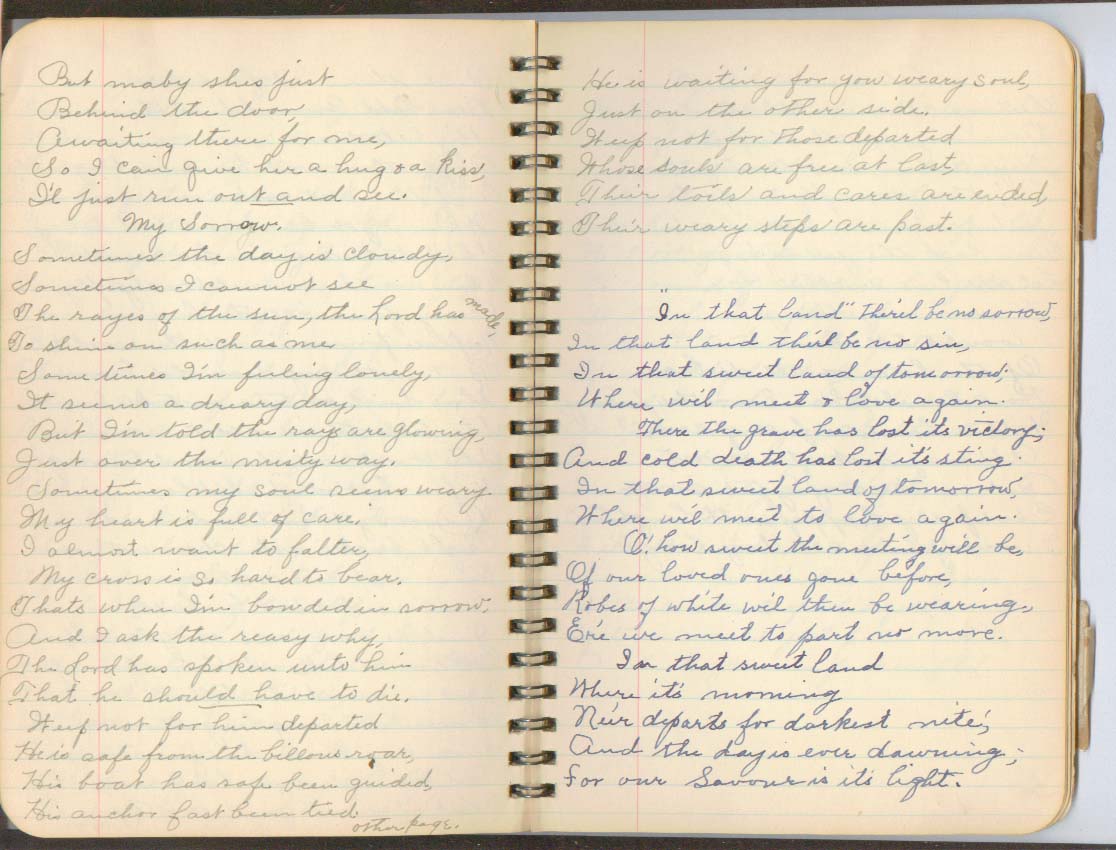 But maby shes just
Behind the door,
Awaiting there for me,
So I can give her a hug & a kiss,
I'l just run out and see.
My Sorrow.
Sometimes the day is cloudy,
Sometimes I cannot see
The rayes of the sun, the Lord has made,
To shine on such as me
Sometimes I'm feeling lonely,
It seems a dreary day,
But I'm told the rays are glowing,
Just over the misty way.
Sometimes my soul seems weary
My heart is full of care,
I almost want to falter,
My cross is so hard to bear.
Thats when I'm bowded in sorrow,
And I ask the reasy why,
The Lord has spoken unto him
That he should have to die.
Weep not for him departed
He is safe from the billows roar,
His boat has safe been guided,
His anchor fast been tied
other page.
He is waiting for you weary soul,
Just on the other side.
Weep not for those departed
Whose souls are free at last,
Their toils and cares are ended,
Their weary steps are past.
"In that land" ther'l be no sorrow,
In that land ther'l be no sin,
In that sweet land of tomorrow;
Where we'l meet & love again.
There the grave has lost its victory;
And cold death has lost it's sting.
In that sweet land of tomorrow,
Where we'l meet to love again.
O! how sweet the meeting will be,
Of our loved ones gone before,
Robes of white we'l then be wearing,
E're we meet to part no more.
In that sweet land
Where it's morning
Ne'er departs for darkest nite,
And the day is ever dawning;
For our Savour is it's light.